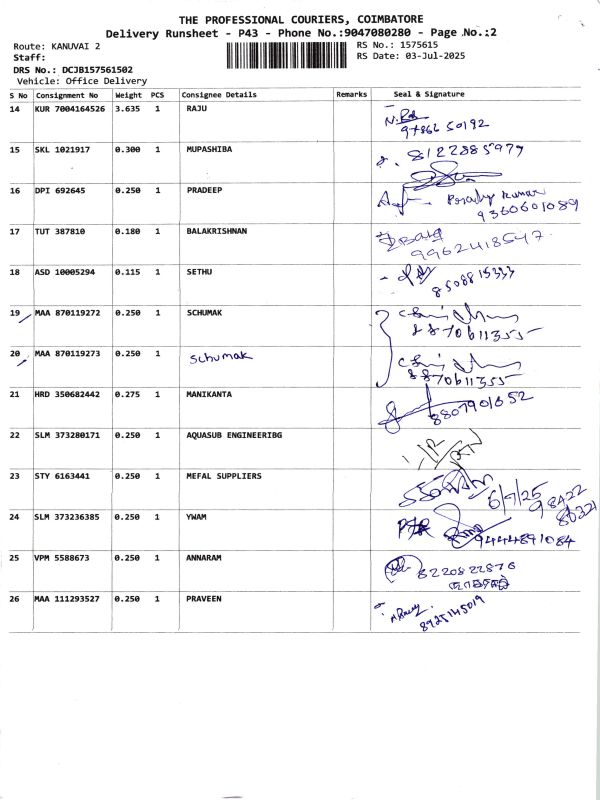 THE PROFESSIONAL COURIERS, COIMBATORE
Delivery Runsheet - P43 - Phone No.:9047080280 - Page No.:2
Route: KANUVAI 2
RS No.: 1575615
Staff:
RS Date: 03-Jul-2025
DRS No.: DCJB157561502
Vehicle: Office Delivery
S No Consignment No Weight PCS Consignee Details Remarks Seal & Signature
14 KUR 7004164526 3.635 1 RAJU
15 SKL 1021917 0.300 1 MUPASHIBA 8122885979
16 DPI 692645 0.250 1 PRADEEP
9360601089
17 TUT 387810 0.180 1 BALAKRISHNAN
9962418547
18 ASD 10005294 0.115 1 SETHU
8508815333
19 MAA 870119272 0.250 1 SCHUMAK
8870611355
20 MAA 870119273 0.250 1 Schumak
8870611355
21 HRD 350682442 0.275 1 MANIKANTA
8807901052
22 SLM 373280171 0.250 1 AQUASUB ENGINEERIBG
23 STY 6163441 0.250 1 MEFAL SUPPLIERS
24 SLM 373236385 0.250 1 YWAM
9444891084
25 VPM 5588673 0.250 1 ANNARAM
8220822876
26 MAA 111293527 0.250 1 PRAVEEN
8925145019